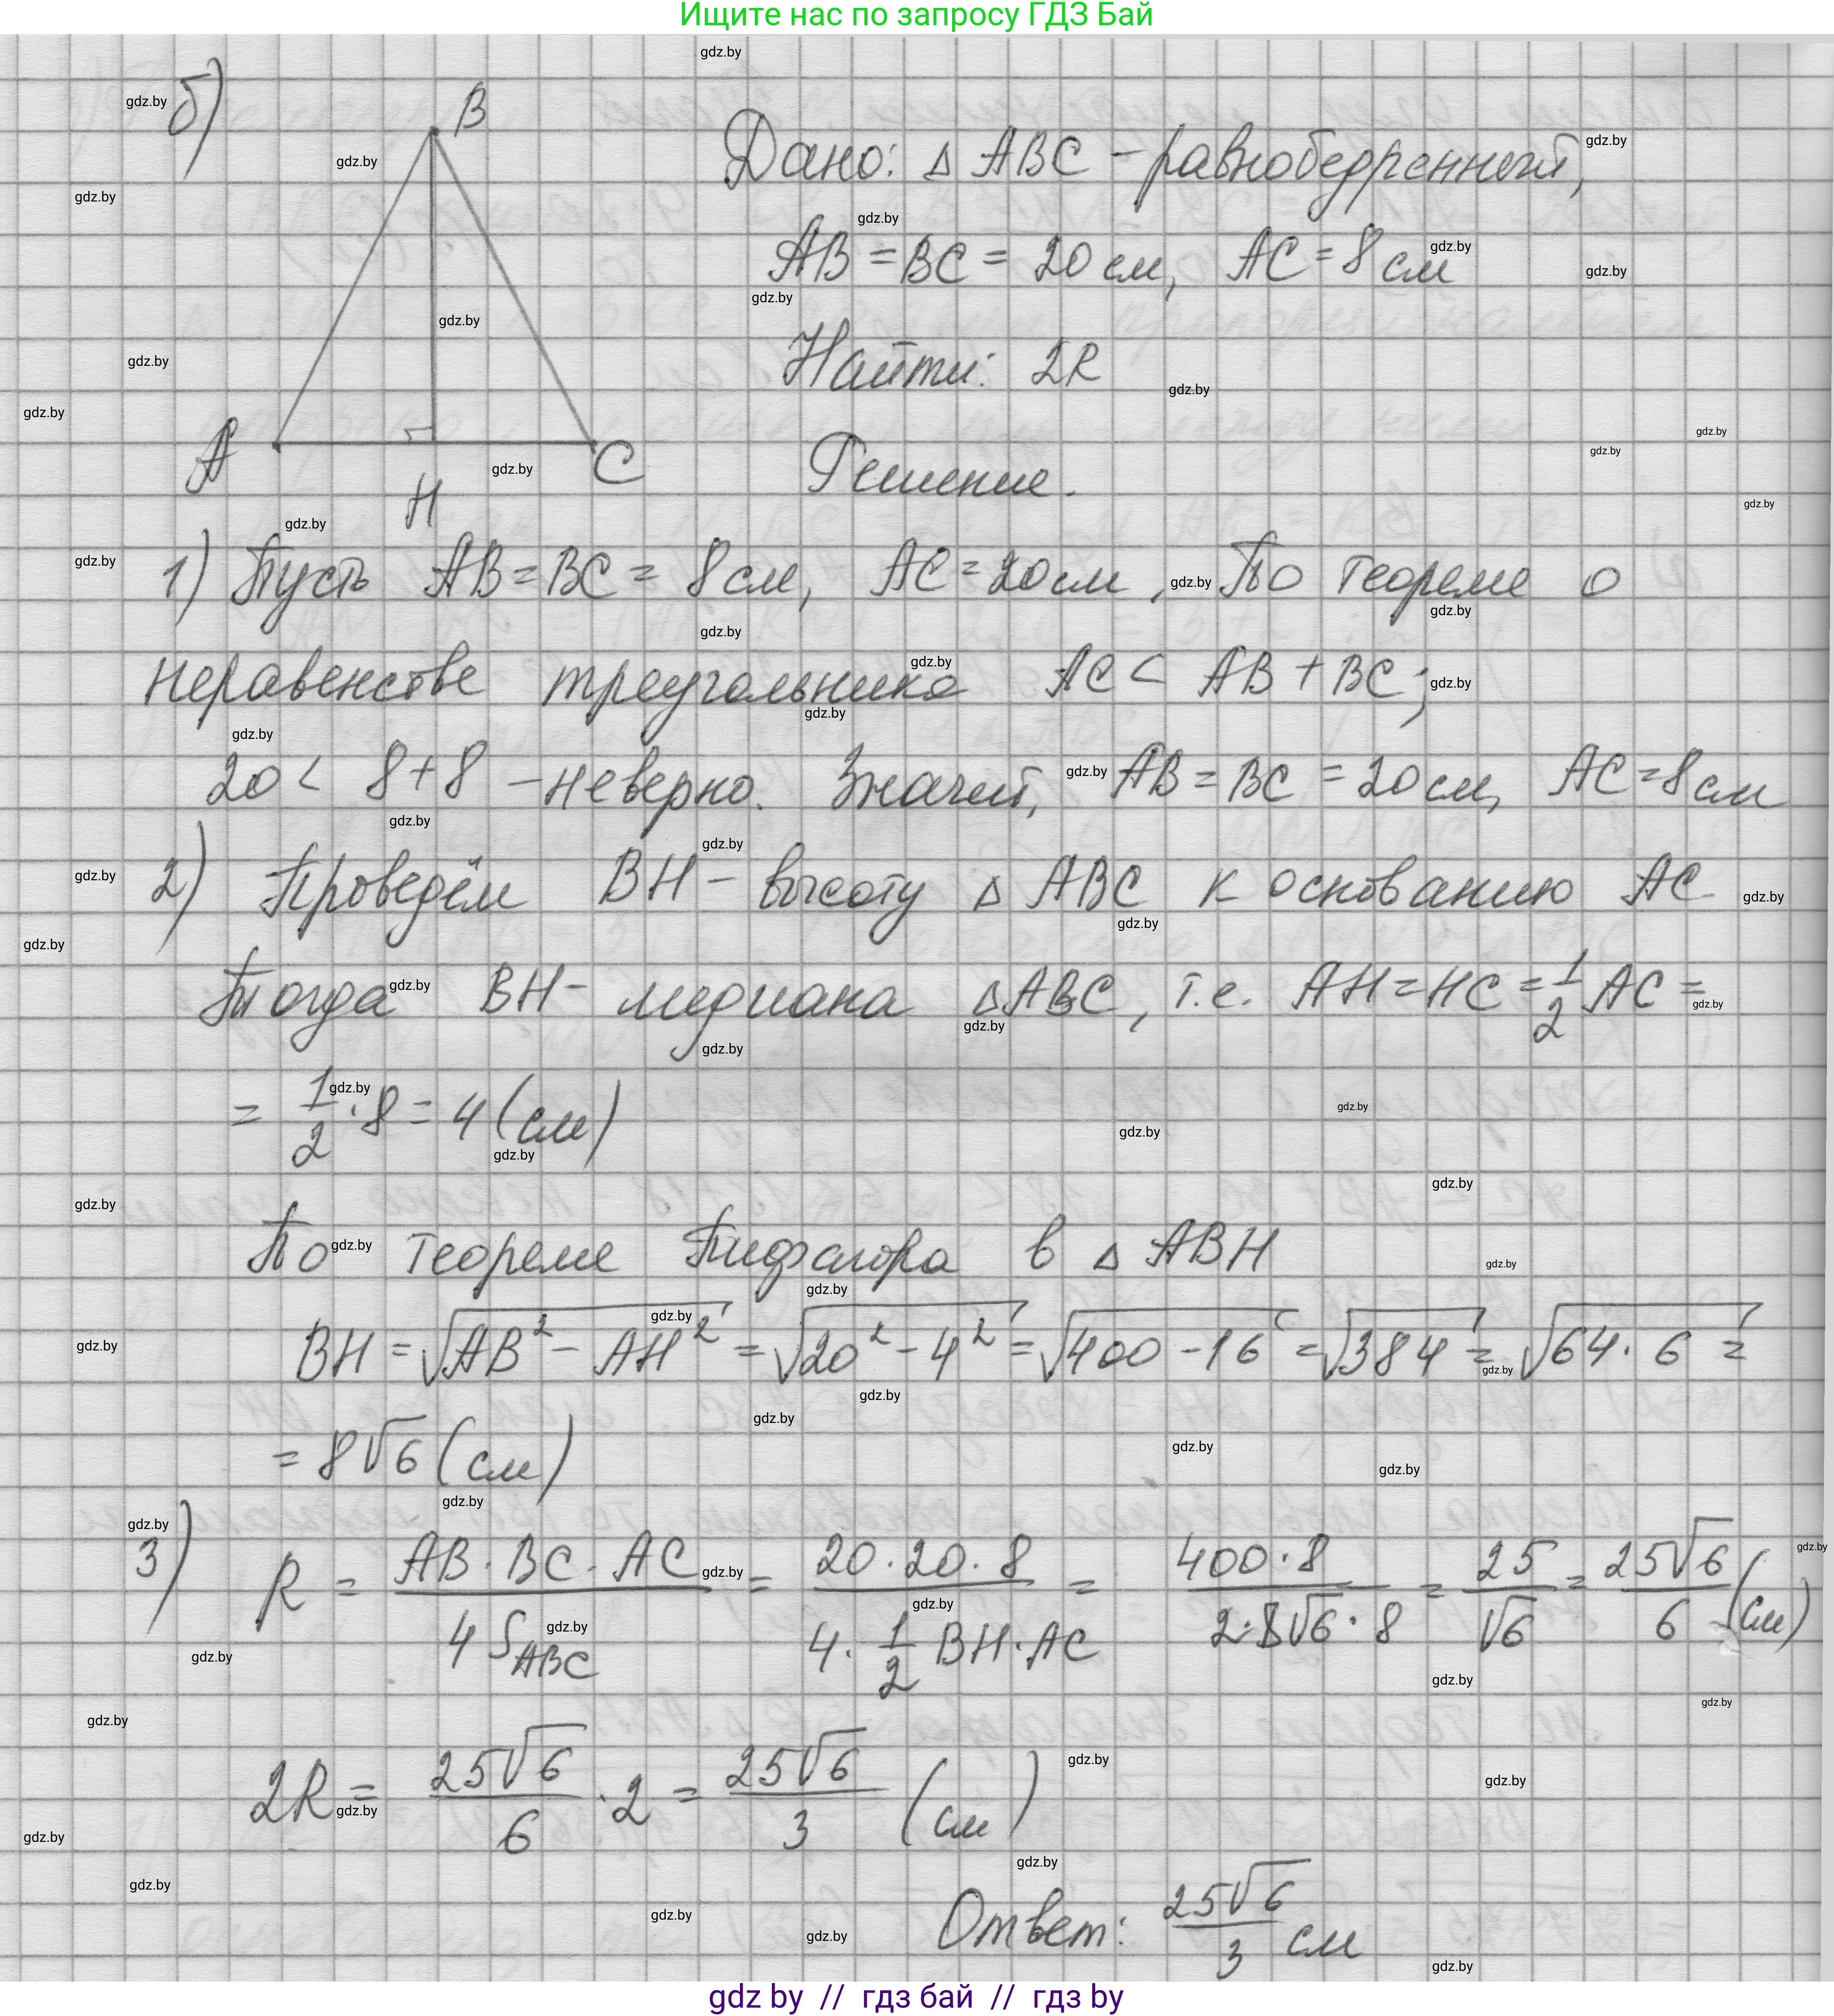 Ищите нас по запросу ГДЗ Бай
б)
B
A
H
C
Дано: △ ABC – равнобедренный,
AB = BC = 20 см, AC = 8 см
Найти: 2R
Решение.
1) Пусть AB = BC = 8 см, AC = 20 см, По теореме о
неравенстве треугольника AC < AB + BC;
20 < 8 + 8 – неверно. Значит, AB = BC = 20 см, AC = 8 см
2) Проведём BH – высоту △ ABC к основанию AC
Тогда BH – медиана △ ABC, т.е. AH = HC = 1/2 AC =
= 1/2 · 8 = 4 (см)
По теореме Пифагора в △ ABH
BH = √(AB² – AH²) = √(20² – 4²) = √(400 – 16) = √384 = √(64 · 6) =
= 8√6 (см)
3) R = (AB · BC · AC)/(4 S_ABC) = (20 · 20 · 8)/(4 · 1/2 BH · AC) = (400 · 8)/(2 · 8√6 · 8) = 25/√6 = 25√6/6 (см)
2R = 25√6/6 · 2 = 25√6/3 (см)
Ответ: 25√6/3 см
gdz by // гдз бай // гдз by